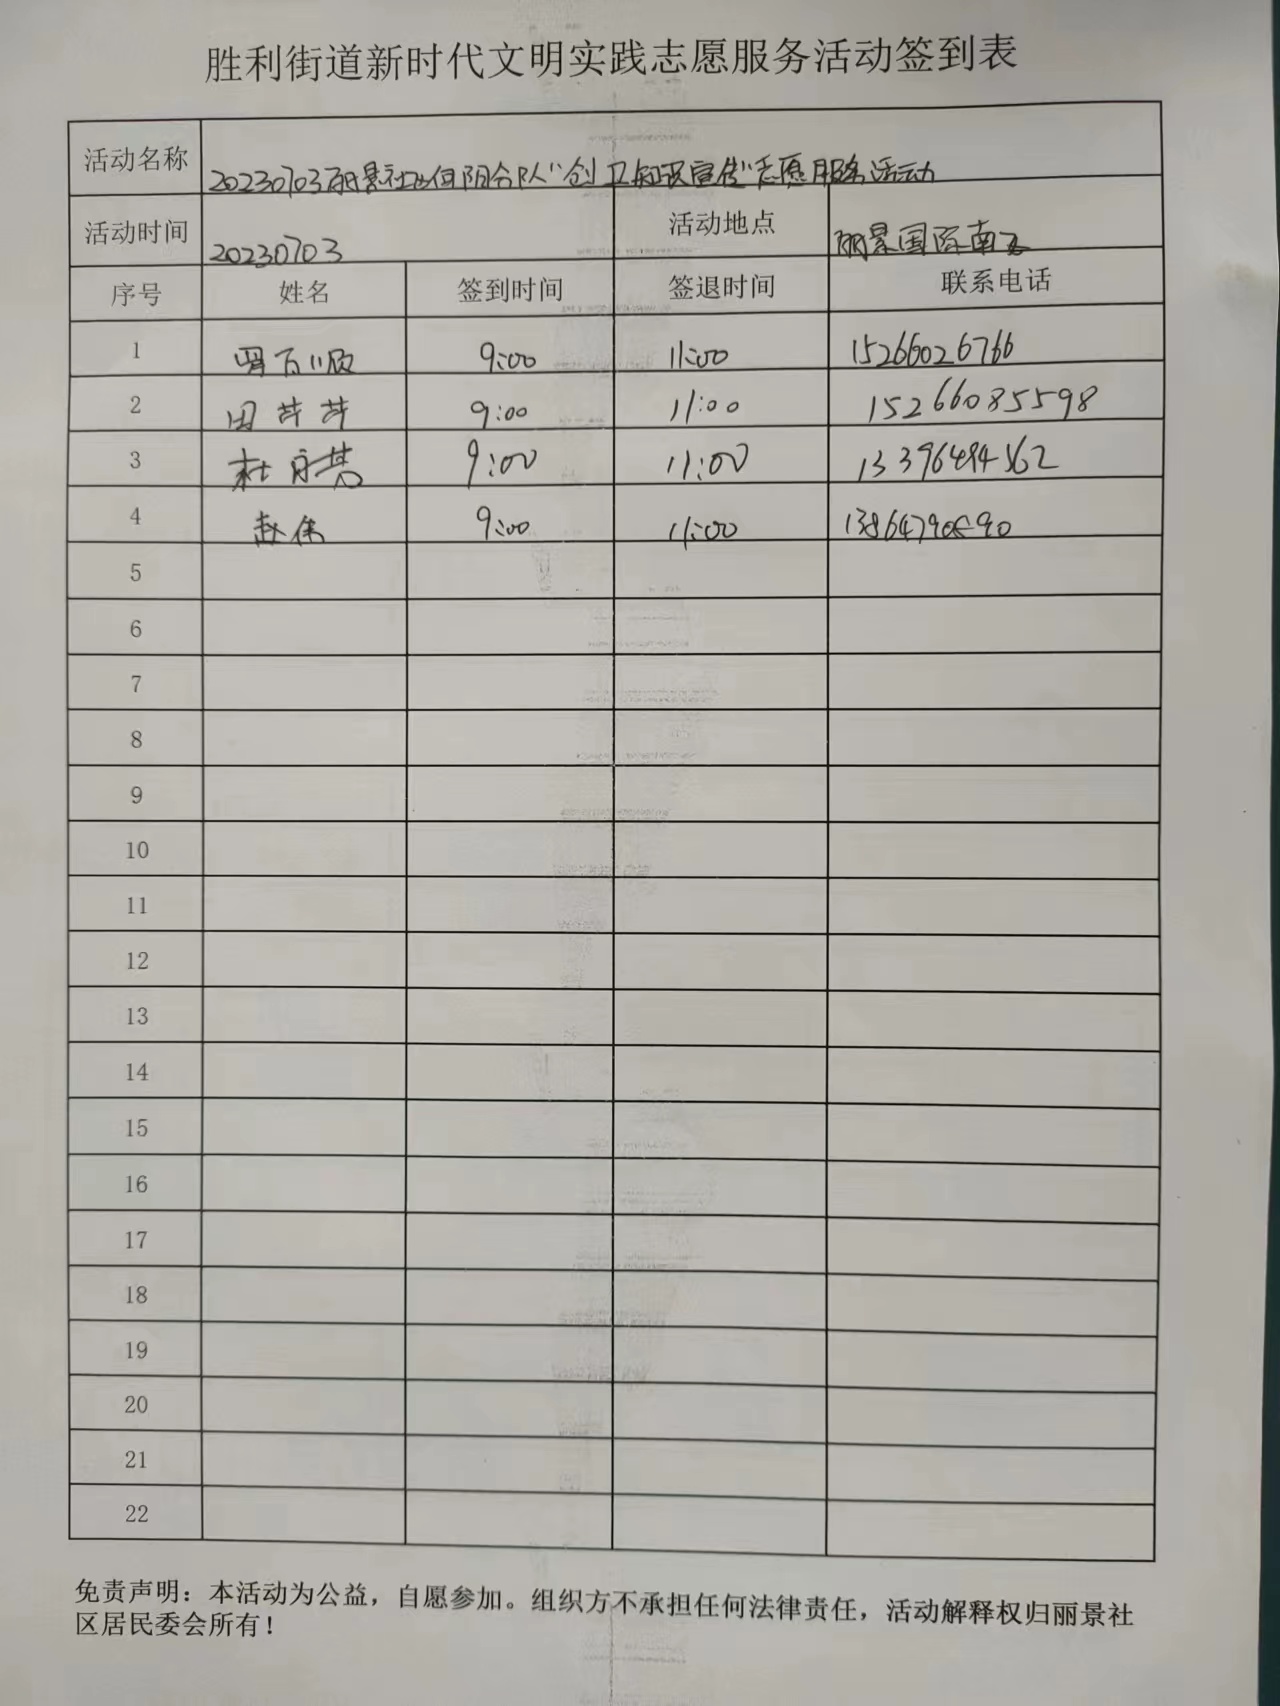 胜利街道新时代文明实践志愿服务活动签到表
活动名称 20230703丽景社区向阳分队“创卫知识宣传”志愿服务活动
活动时间 20230703 活动地点 丽景国际南区
序号 姓名 签到时间 签退时间 联系电话
1 百顺 9:00 11:00 15266026766
2 田芹芹 9:00 11:00 15266085598
3 杜 9:00 11:00 13396494362
4 赵伟 9:00 11:00
5
6
7
8
9
10
11
12
13
14
15
16
17
18
19
20
21
22
免责声明：本活动为公益，自愿参加。组织方不承担任何法律责任，活动解释权归丽景社
区居民委会所有！